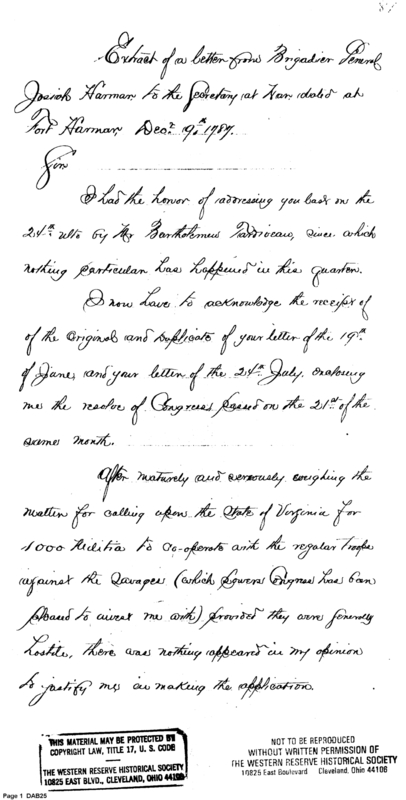 Extract of a letter from Brigadier General
Josiah Harmar to the Secretary at War dated at
Fort Harmar Decr. 9th 1787.
Sir
I had the honor of addressing you last on the
24th ulto by Mr Bartholemew Tardiveau, since which
nothing particular has happened in this quarter.
I now have to acknowledge the receipt of
of the Original and Duplicate of your letter of the 19th
of June, and your letter of the 24th July, enclosing
me the resolve of Congress passed on the 21st of the
same month.
After maturely and seriously weighing the
matter for calling upon the State of Virginia for
1000 Militia to co-operate with the regular troops
against the Savages (which powers Congress has been
pleased to invest me with) provided they were generally
hostile, there was nothing appeared in my opinion
to justify me in making the application.
THIS MATERIAL MAY BE PROTECTED BY
COPYRIGHT LAW, TITLE 17, U. S. CODE
THE WESTERN RESERVE HISTORICAL SOCIETY
10825 EAST BLVD., CLEVELAND, OHIO 44106
NOT TO BE REPRODUCED
WITHOUT WRITTEN PERMISSION OF
THE WESTERN RESERVE HISTORICAL SOCIETY
10825 East Boulevard Cleveland, Ohio 44106
Page 1 DAB25